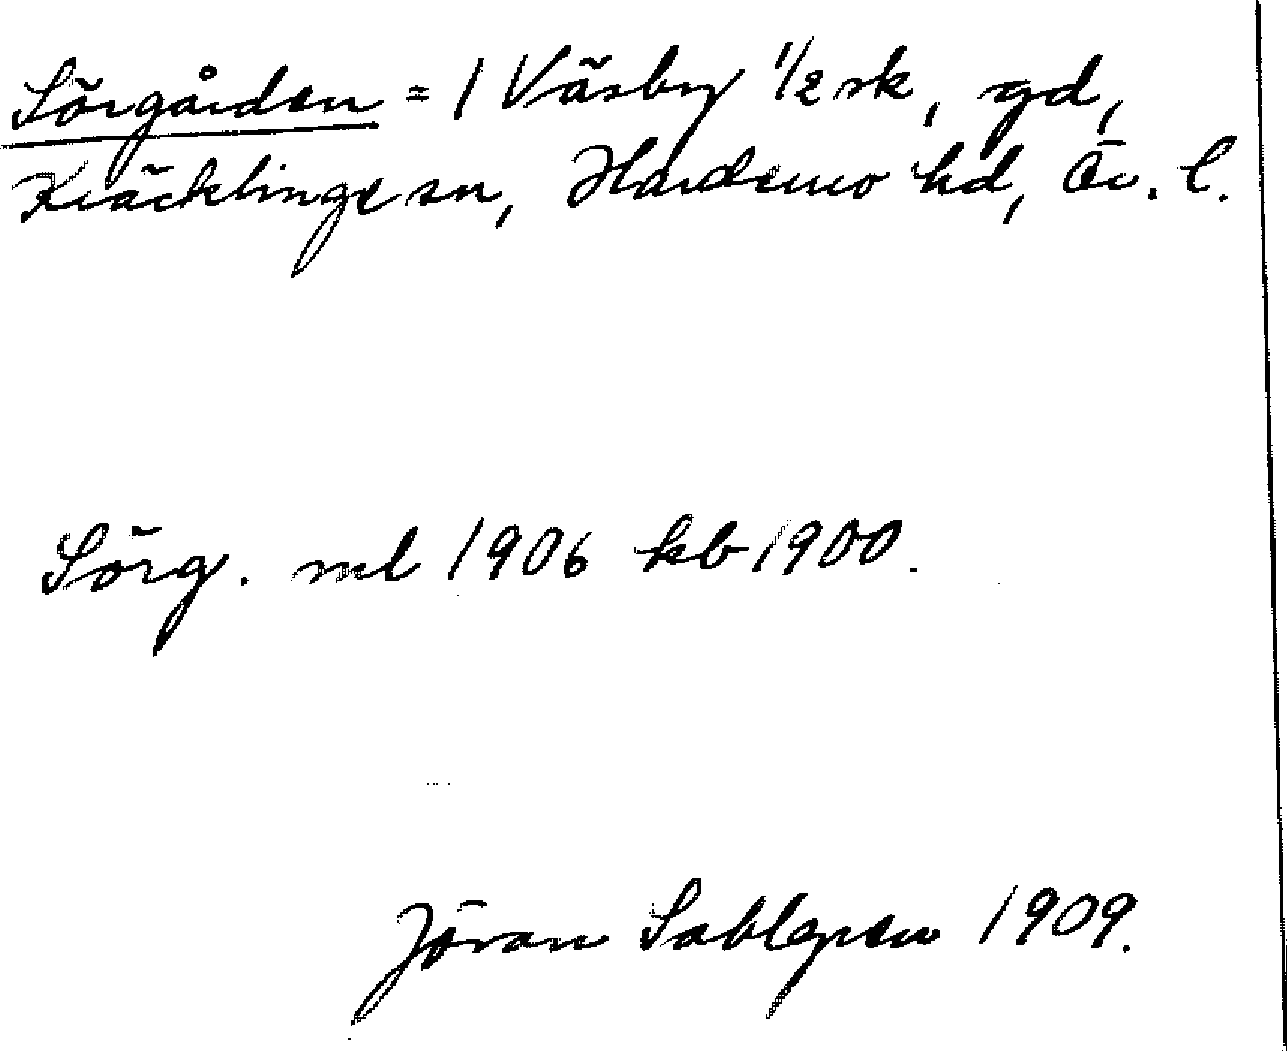 Sörgården = 1 Väsby 1/2 sk, gd,
Kräcklinge sn, Hardemo hd, Ör. l.
Sörg. ml 1906 kb 1900.
Jöran Sahlgren 1909.